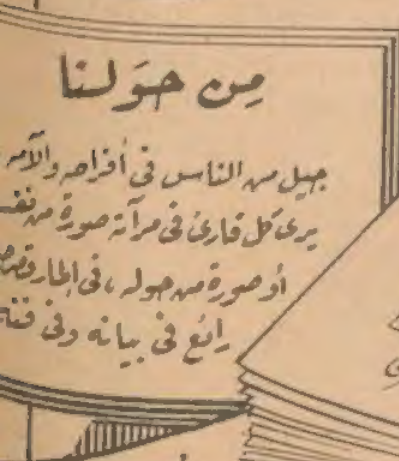 من حولنا
جيل من الناس في أفراحه وآلامه
يرى كل قارئ في مرآته صورة من نفسه
أو صورة من حوله ، في إطار قصصى
رائع في بيانه وفي فنه